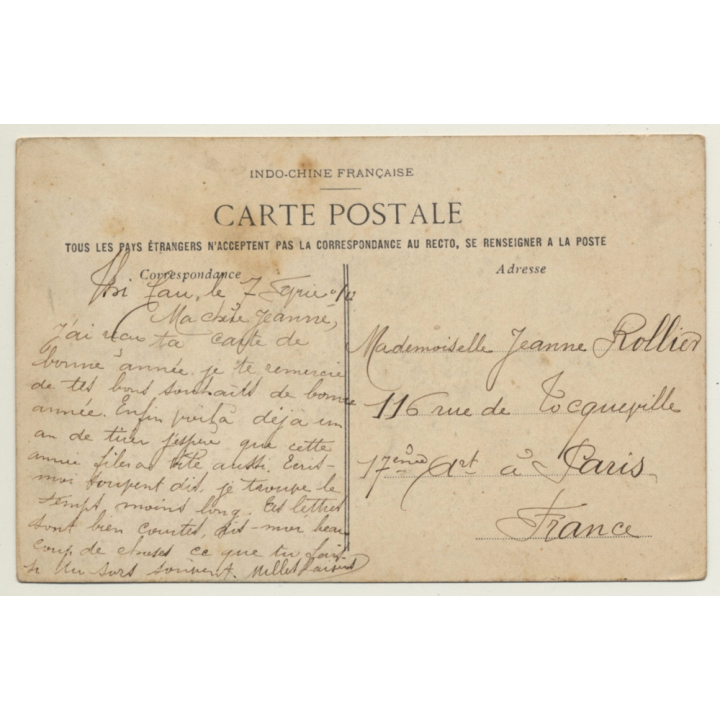 INDO-CHINE FRANÇAISE
CARTE POSTALE
TOUS LES PAYS ÉTRANGERS N'ACCEPTENT PAS LA CORRESPONDANCE AU RECTO, SE RENSEIGNER A LA POSTE
Correspondance
le 7
Ma chère Jeanne,
j'ai reçu ta carte de
bonne année. je te remercie
de tes bons souhaits de bonne
année. Enfin voilà déjà un
an de tiré j'espère que cette
année filera vite aussi. Ecris-
moi souvent dis, je trouve le
temps moins long. Tes lettres
sont bien courtes, dis-moi beau
coup de choses ce que tu fais
si tu sors souvent.
Adresse
Mademoiselle Jeanne Rollier
116 rue de Tocqueville
17ème Art à Paris
France